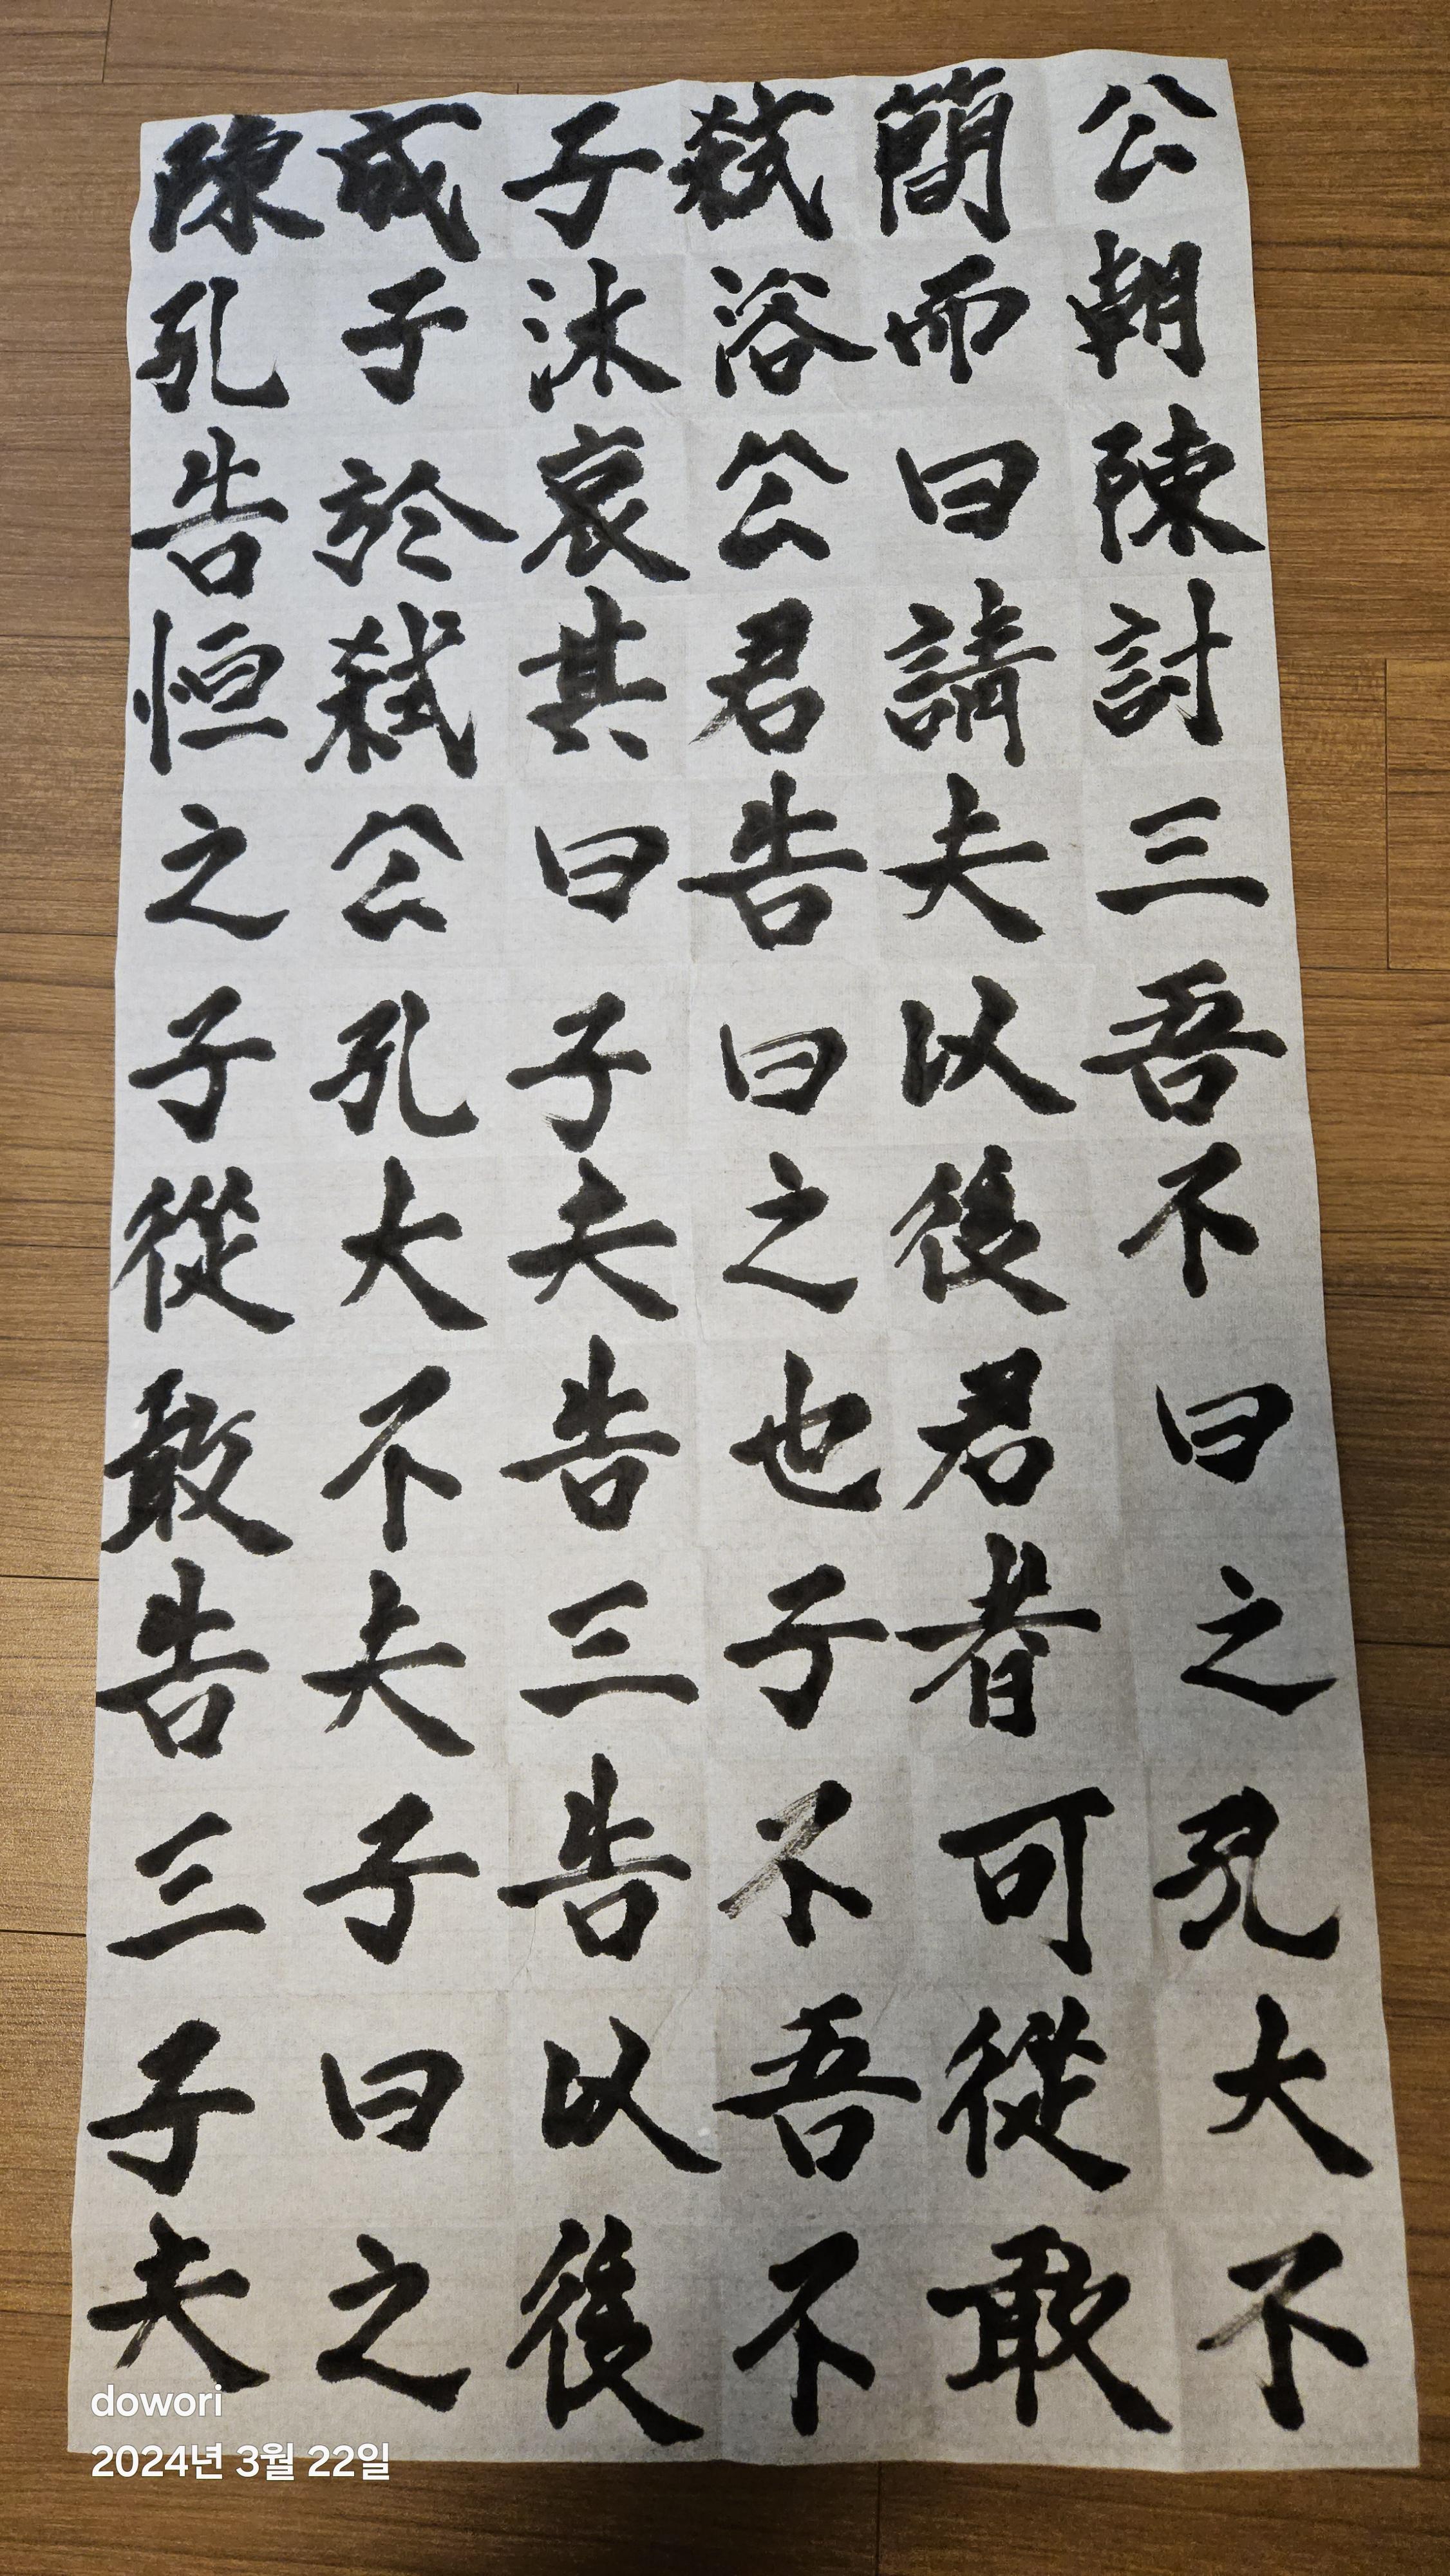 陳成子弑簡公
孔子沐浴而朝
告於哀公曰陳
恒弑其君請討
之公曰告夫三
子孔子曰以吾
從大夫之後不
敢不告也君曰
告夫三子者之
三子告不可孔
子曰以吾從大
夫之後不敢不
dowori
2024년 3월 22일